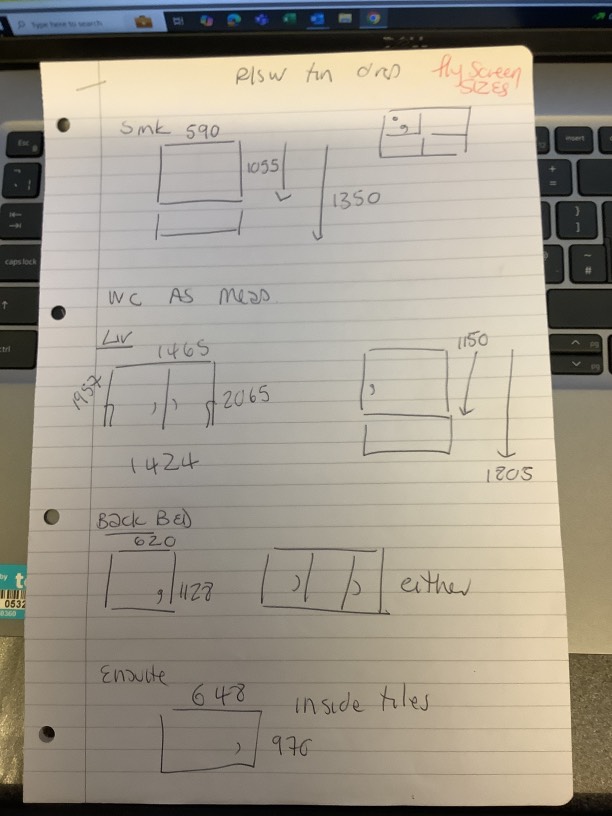 Fly Screen
SIZES
Smk 590
1055
1350
WC AS meas
Liv
1465
1150
1957
2065
1424
1205
Back Bed
620
1128
either
Ensuite
648
inside tiles
976
Type here to search
Esc
insert
caps lock
ctrl
0532